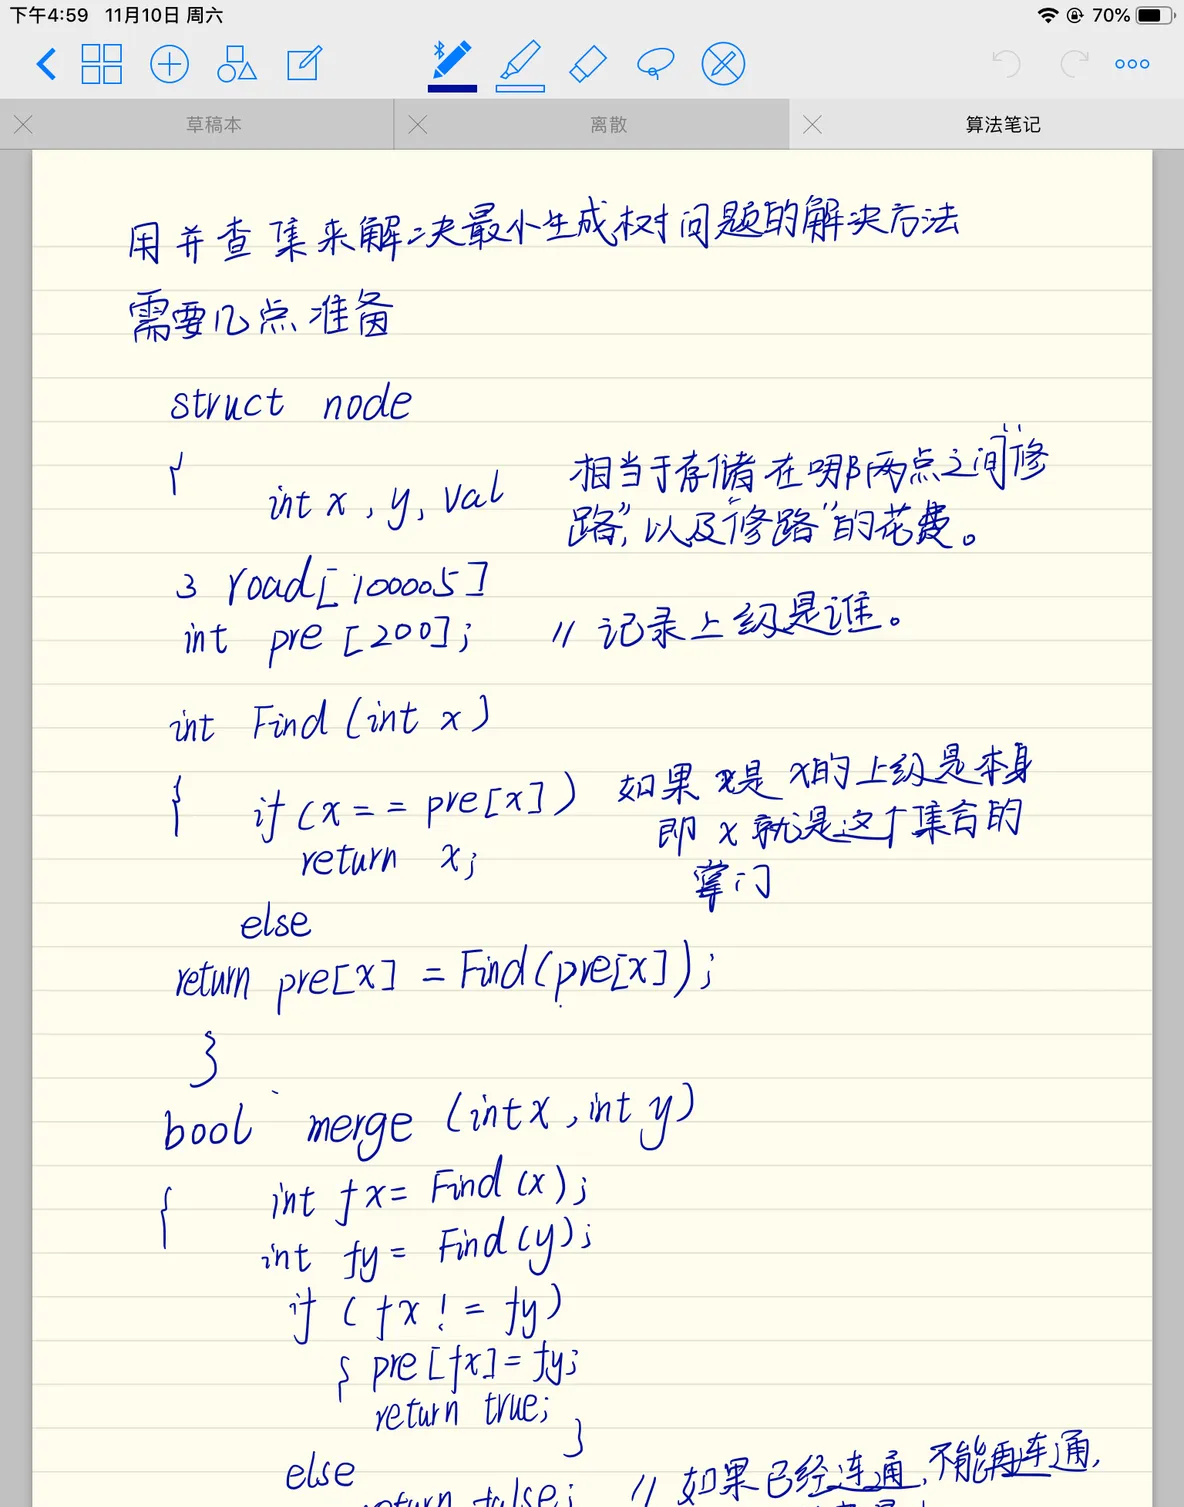 下午4:59 11月10日 周六 70%
草稿本 离散 算法笔记
用并查集来解决最小生成树问题的解决方法
需要几点准备
struct node
{
int x, y, val
相当于存储在哪两点之间“修
路”，以及“修路”的花费。
} road[100005]
int pre [200]; // 记录上级是谁。
int Find (int x)
{ if (x == pre[x]) 如果 x是 x的上级是本身
return x; 即 x 就是这个集合的
掌门
else
return pre[x] = Find(pre[x]);
}
bool merge (int x, int y)
{ int fx = Find (x);
int fy = Find(y);
if (fx != fy)
{ pre[fx] = fy;
return true;
}
else
return false; // 如果已经连通,不能再连通,